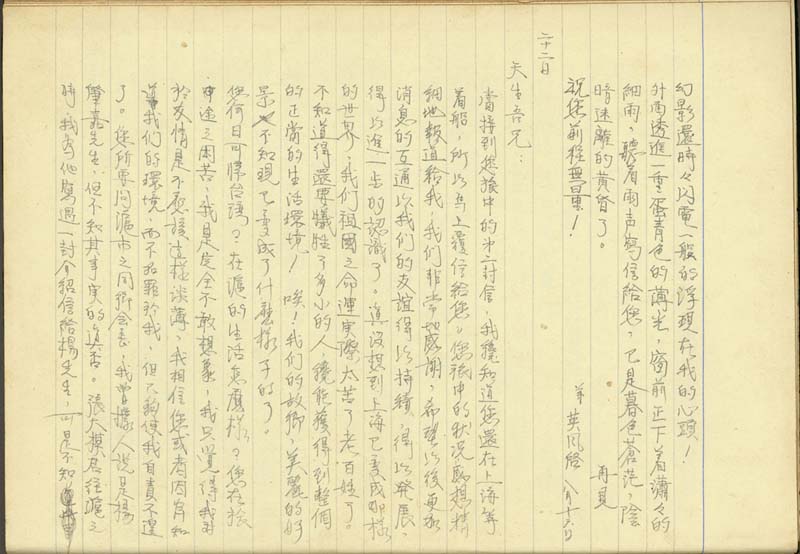 幻影還時々閃電一般的浮現在我的心頭！
外面透進一重蛋青色的薄光，窗前正下着瀟々的
細雨，聽着雨声寫信給您，已是暮色蒼茫，陰
暗迷離的黄昏了。
祝您前程無量！ 再見
羊英風啓 八月十六日
二十二日
天生吾兄：
當接到您滬中的第二封信，我纔知道您還在上海等
着船，所以馬上覆信給您。您滬中的狀况盼想精
細地報道給我，我们非常地感謝，希望以後更加
消息的互通以我们的友誼得以持續，得以發展，
得以進一步的認識了。真没想到上海已変成如様
的世界，我们祖國之命運実際太苦了老百姓了。
不知道得還要犠牲了多小的人，纔能獲得到整個
的正當的生活環境！唉！我们的故鄉，美麗的好
景不知現已変成了什麼樣子的了。
您何日可歸台湾？在滬的生活怎麼樣？您在於
中途之困苦，我是完全不敢想象，我只覺得我對
於友情是不應該這樣淡薄，我相信您或者因有知
道我们的環境，而不抱罪於我，但只夠使我自責不遑
了。您所要问滬市之同鄉会長，我曽據人説是楊
肇嘉先生，但不知其事实的真否。張大模君往滬之
時，我寄他寫過一封介紹信給楊先生，可是不知